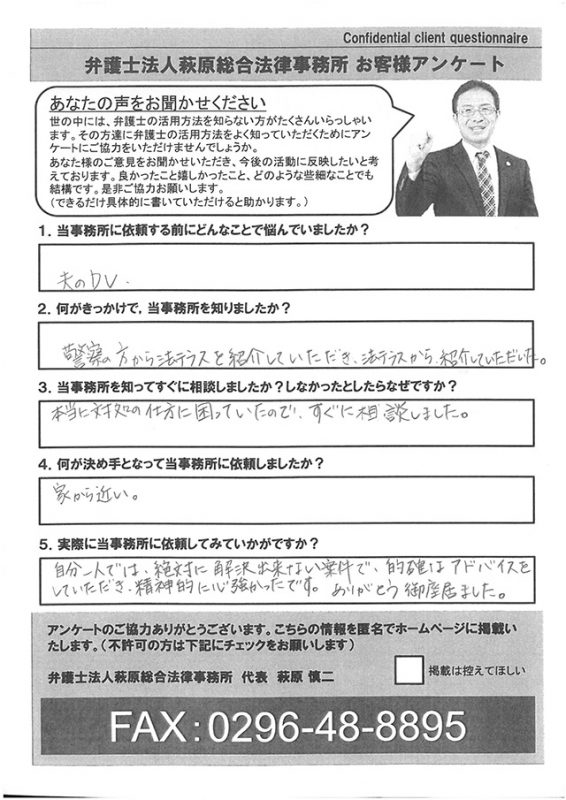 Confidential client questionnaire
弁護士法人萩原総合法律事務所 お客様アンケート
あなたの声をお聞かせください
世の中には、弁護士の活用方法を知らない方がたくさんいらっしゃい
ます。その方達に弁護士の活用方法をよく知っていただくためにアン
ケートにご協力をいただけませんでしょうか。
あなた様のご意見をお聞かせいただき、今後の活動に反映したいと考
えております。良かったこと嬉しかったこと、どのような些細なことでも
結構です。是非ご協力お願いします。
(できるだけ具体的に書いていただけると助かります。)
1. 当事務所に依頼する前にどんなことで悩んでいましたか?
夫のDV.
2. 何がきっかけで,当事務所を知りましたか?
警察の方から法テラスを紹介していただき、法テラスから、紹介していただいた。
3. 当事務所を知ってすぐに相談しましたか?しなかったとしたらなぜですか?
本当に対処の仕方に困っていたので、すぐに相談しました。
4. 何が決め手となって当事務所に依頼しましたか?
家から近い。
5. 実際に当事務所に依頼してみていかがですか?
自分一人では、絶対に解決出来ない案件で、的確なアドバイスを
していただき、精神的に心強かったです。ありがとう御座居ました。
アンケートのご協力ありがとうございます。こちらの情報を匿名でホームページに掲載い
たします。(不許可の方は下記にチェックをお願いします)
弁護士法人萩原総合法律事務所 代表 萩原 慎二
掲載は控えてほしい
FAX:0296-48-8895